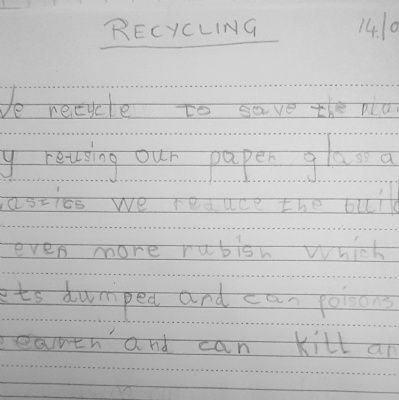 RECYCLING 14/0
We recycle to save the pla
y reusing our paper glass a
lastics we reduce the buil
even more rubish which
ets dumped and can poisons
e earth and can kill an